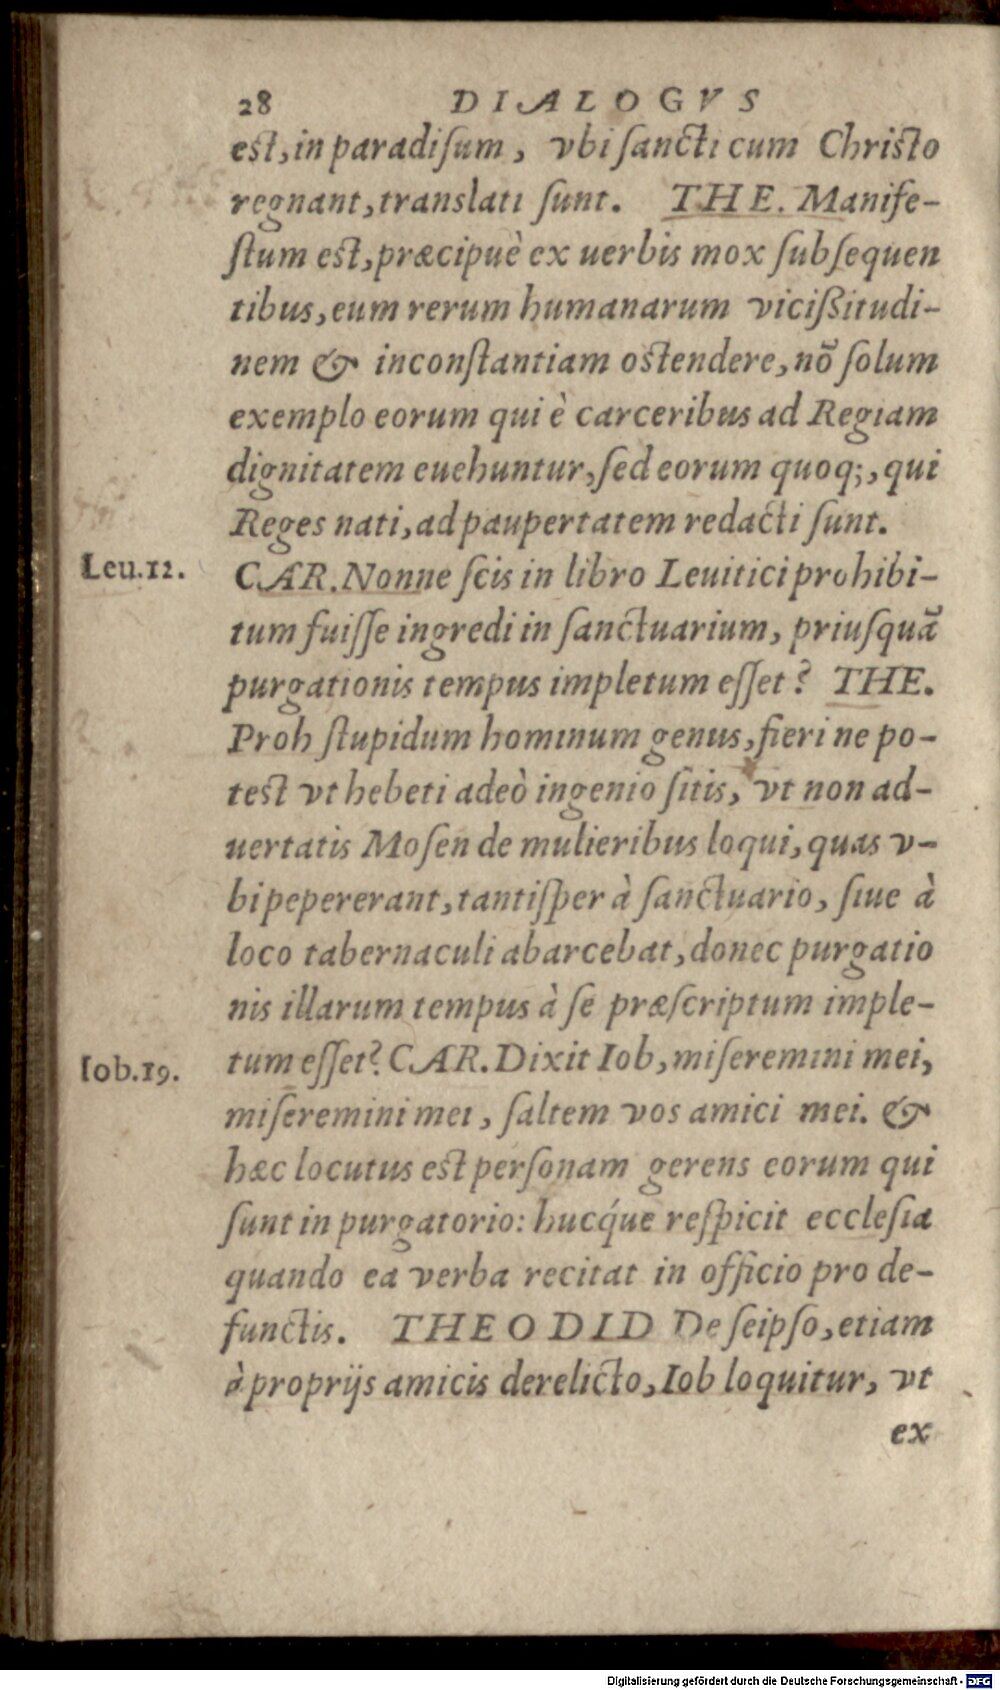 28 DIALOGVS
est, in paradiſum, vbi ſancti cum Chriſto
regnant, translati ſunt. THE. Manife-
ſtum est, præcipuè ex uerbis mox ſubſequen
tibus, eum rerum humanarum vicißitudi-
nem & inconſtantiam oſtendere, nō ſolum
exemplo eorum qui è carceribus ad Regiam
dignitatem euehuntur, ſed eorum quoq;, qui
Reges nati, ad paupertatem redacti ſunt.
Leu.12. CAR. Nonne ſcis in libro Leuitici prohibi-
tum fuiſſe ingredi in ſanctuarium, priuſquā
purgationis tempus impletum eſſet? THE.
Proh ſtupidum hominum genus, fieri ne po-
test vt hebeti adeò ingenio ſitis, vt non ad-
uertatis Moſen de mulieribus loqui, quas v-
bi pepererant, tantiſper à ſanctuario, ſiue à
loco tabernaculi abarcebat, donec purgatio
nis illarum tempus à ſe præſcriptum imple-
Iob.19. tum eſſet? CAR. Dixit Iob, miſeremini mei,
miſeremini mei, ſaltem vos amici mei. &
hæc locutus est perſonam gerens eorum qui
ſunt in purgatorio: hucq́ue reſpicit eccleſia
quando ea verba recitat in officio pro de-
functis. THEODID De ſeipſo, etiam
à proprijs amicis derelicto, Iob loquitur, vt
ex
Digitalisierung gefördert durch die Deutsche Forschungsgemeinschaft - DFG